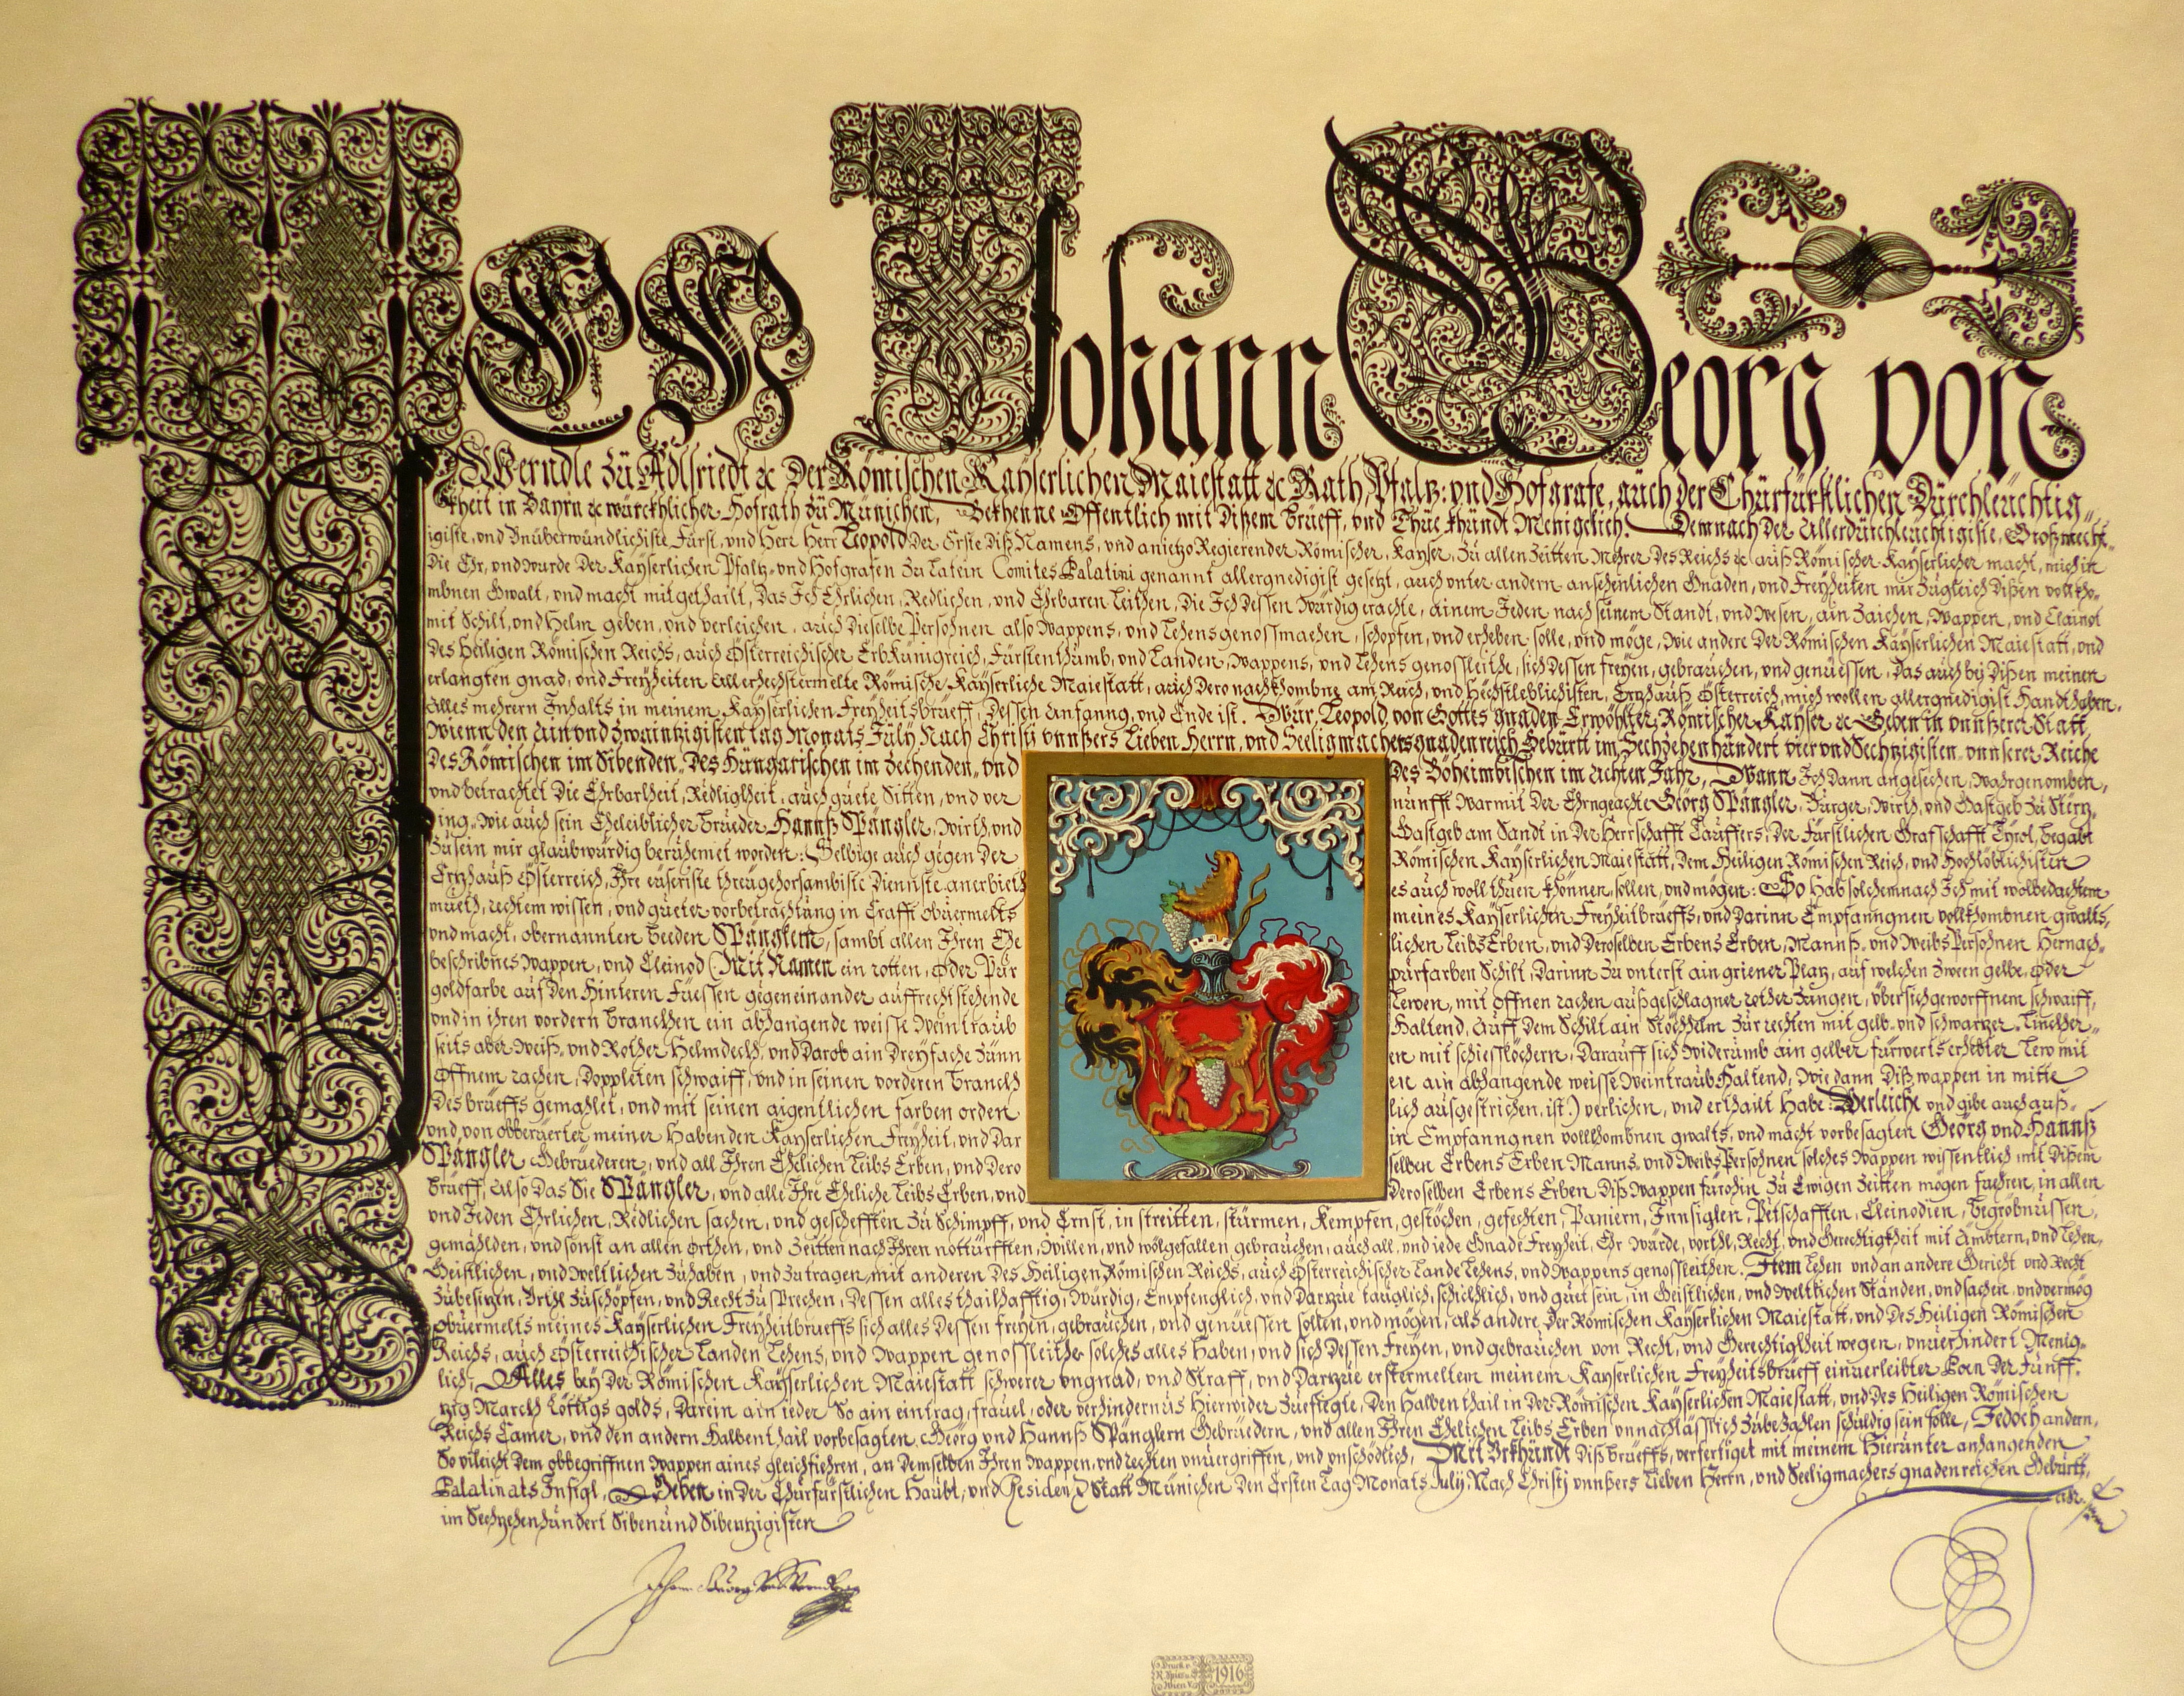 ICH Johann Georg von
Werndle zů Adlsriedt ꝛc Der Römischen Kayserlichen Maiestatt ꝛc Rath, Pfaltz: vnd Hofgrafe, aůch der Chůrfürstlichen Dürchleüchtig„
kheit in Bayrn ꝛc würckhlicher Hofrath zů Můnichen, Bekhenne Offentlich mit disem brüeff, vnd Thůe khůndt Menigclich. Demnach der Allerdürchleüchtigiste, Großmecht„
igiste, vnd Vnüberwündlichiste Fürst, vnd Herr Herr Leopold der Erste diß Namens, vnd anietzo Regierender Römischer, Kayser, zů allen Zeitten Mehrer des Reichs ꝛc aůß Römischer Kayserlicher macht, mich in
die Ehr, vnd wůrde der Kayserlichen Pfaltz- vnd Hofgrafen zů Latein Comites Palatini genannt allergnedigist gesetzt, aůch vnter andern ansehenlichen Gnaden, vnd Freyheiten mir zůgleich disen vollkho„
mbnen Gwalt, vnd macht mitgethailt, das Ich Ehrlichen, Redlichen, vnd Ehrbaren leithen, die Ich dessen würdig erachte, ainem Jeden nach seinem Standt, vnd wesen, ain Zaichen, Wappen, vnd Clainot
mit Schilt, vnd Helm geben, vnd verleichen, aůch dieselbe Persohnen also Wappens, vnd Lehensgenoss machen, schöpfen, vnd erheben solle, vnd möge, wie andere der Römischen Kayserlichen Maiestatt, vnd
des Heiligen Römischen Reichs, aůch Österreichischer Erbkünigreich, Fürstenthůmb, vnd Landen, Wappens, vnd Lehens genossleithe, sich dessen freyen, gebraůchen, vnd genüessen, das aůch bey disen meinen
erlangten gnad, vnd Freyheiten Allerhechstermelte Römische Kayserliche Maiestatt, aůch Dero nachkhombne am Reich, vnd Höchstleblichisten, Ertzhaůß Österreich, mich wollen allergnedigist Handthaben.
Alles mehrern Inhalts in meinem Kayserlichen Freyheitsbrüeff, dessen Anfanng, vnd Ende ist. Wür, Leopold, von Gottes gnaden Erwöhlter Römischer Kayser ꝛc Geben in vnnßerer Statt
Wienn den Ain vnd Zwaintzigisten tag Monats Jůly Nach Christi vnnßers lieben Herrn, vnd Seeligmachers gnadenreich Gebůrtt im Sechzehenhůndert vier vnd Sechtzigisten, vnnserer Reiche
des Römischen im Sibenden„ des Hůngarischen im Zechenden„ vnd des Böheimbischen im Achten Jahr, Wann Ich dann angesehen, wahrgenomben,
vnd betrachtet die Ehrbarkheit, Redligkheit, aůch gůete Sitten, vnd ver nůnfft warmit der Ehrngeachte Georg Spängler, Bůrger, Wirth, vnd Gastgeb zů Stertz„
ing„ wie aůch sein Eheleiblicher brůeder Hannß Spängler, Wirth, vnd Gastgeb am Sandt in der Herrschafft Taůffers, der Fürstlichen Grafschafft Tyrol, begabt
zůsein mir glaůbwürdig berühemet worden: Selbige aůch gegen der Römischen Kayserlichen Maiestatt, dem Heiligen Römischen Reich, vnd Hochlöblichisten
Ertzhaůß Österreich, Ihre eůseriste threůgehorsambiste diennste anerbieth es aůch woll thůen können, sollen, vnd mögen: So hab solchemnach Ich mit wolbedachtem
můeth, rechtem wissen, vnd gůeter vorbetrachtůng in Crafft obůermelts meines Kayserlichen Freyheitbrüeffs, vnd darinn Empfanngnen vollkhombnen gwalts,
vnd macht, obernannten beeden Spänglern, sambt allen Ihren Ehe lichen Leibs Erben, vnd deroselben Erbens Erben, Manns- vnd Weibs Persohnen Hernach„
beschribnes Wappen, vnd Cleinod (Mit Namen ein rotten, oder Pür pürfarben Schilt, darinn zů vnterst ain griener Platz, aůf welchen zween gelbe, oder
goldfarbe aůf den Hinteren Füessen gegeneinander aůffrecht stehende Lewen, mit offnen rachen aůßgeschlagner rother Zůngen, vbersichgeworffnem schwaiff,
vnd in ihren vordern branckhen ein abhangende weisse Weintraůb Haltend, aůff dem Schilt ain Stöchhelm zůr rechten mit gelb- vnd schwartzer„ Linckher„
seits aber Weiß- vnd Rother Helmdeckh, vnd darob ain dreyfache Zünn en mit schiesslöchern, daraůff sich widerůmb ain gelber fürwerts erhebter Lew mit
offnem rachen, doppleten schwaiff, vnd in seinen vorderen branckh en ain abhangende weisse Weintraůb Haltend, wie dann diß wappen in mitte
des brüeffs gemahlet, vnd mit seinen aigentlichen farben orden lich aůsgestrichen, ist.) verlichen, vnd erthailt habe: Verleiche vnd gibe aůch aůß„
vnd von obberüerter meiner Habenden Kayserlichen Freyheit, vnd dar in Empfanngnen vollkhombnen gwalts, vnd macht vorbesagten Georg vnd Hannß
Spängler Gebrüederen, vnd all Ihren Ehelichen Leibs Erben, vnd dero selben Erbens Erben Manns- vnd Weibs Persohnen solches Wappen wissentlich mit disem
brüeff, also das die Spängler, vnd alle Ihre Eheliche Leibs Erben, vnd deroselben Erbens Erben diß Wappen fürohin zů Ewigen Zeitten mögen fuehren, in allen
vnd Jeden Ehrlichen, Redlichen sachen, vnd geschefften zů Schimpff, vnd Ernst, in streitten, stürmen, Kempfen, gestöchen, gefechten, Paniern, Innsiglen, Petschafften, Cleinodien, begröbnüssen,
gemählden, vnd sonst an allen orthen, vnd Zeitten nach Ihren notturfften, Willen, vnd wölgefallen gebraůchen, aůch all vnd iede Gnade Freyheit, Ehr Würde, vorthl, Recht, vnd Gerechtigkheit mit Ämbtern, vnd Lehen„
Geistlichen, vnd Weltlichen zůhaben, vnd zů tragen mit anderen des Heiligen Römischen Reichs, aůch Österreichischer Lande Lehens, vnd Wappens genossleithen. Item Lehen vnd an andere Gericht vnd Recht
zůbesitzen, Vrthl zůschöpfen, vnd Recht zů sprechen, dessen alles thailhafftig, Würdig, Empfenglich, vnd dartzůe taůglich, schicklich, vnd gůet sein, in Geistlichen, vnd Weltlichen Ständen, vnd sachen vnd vermög
obůermelts meines Kayserlichen Freyheitbrüeffs sich alles dessen freyen, gebraůchen, vnd genüessen sollen, vnd mögen, als andere der Römischen Kayserlichen Maiestatt, vnd des Heiligen Römischen
Reichs, aůch Österreichischer Landen Lehens, vnd Wappen genossleithe solches alles Haben, vnd sich dessen Freyen, vnd gebraůchen von Recht, vnd Gerechtigkheit wegen, vnůerhindert Menig„
lich; Alles bey der Römischen Kayserlichen Maiestatt schwerer vngnad, vnd Straff, vnd dartzůe erstermeltem meinem Kayserlichen Freyheitsbrüeff einůerleibter Poen der Fůnff„
tzig March Löttigs golds, darein ain ieder So ain eintrag, fraůel, oder verhindernüs Hierwider zůefiegte, den Halben thail in der Römischen Kayserlichen Maiestatt, vnd des Heiligen Römischen
Reichs Camer, vnd den andern Halben thail vorbesagten Georg vnd Hannß Spänglern Gebrüedern, vnd allen Ihren Ehelichen Leibs Erben vnnachlässlich zůbezahlen schuldig sein solle, Jedoch andern,
So vileicht dem obbegriffnen Wappen aines gleich fiehren, an demselben Ihren Wappen, vnd rechten vnůergriffen, vnd vnschödlich, Mit Vrkhündt diß brüeffs, verfertiget mit meinem Hierůnter anhangenden
Palatinats Insigl, Geben in der Chůrfürstlichen Haůbt, vnd Residentz Statt Münichen den Ersten Tag Monats July, Nach Christi vnnßers lieben Herrn, vnd Seeligmachers gnadenreichen Gebůrth,
im Sechtzehenhůndert Siben ůnd Sibentzigisten
Johann Georg von Werndle
Druck v.
Wien
1916